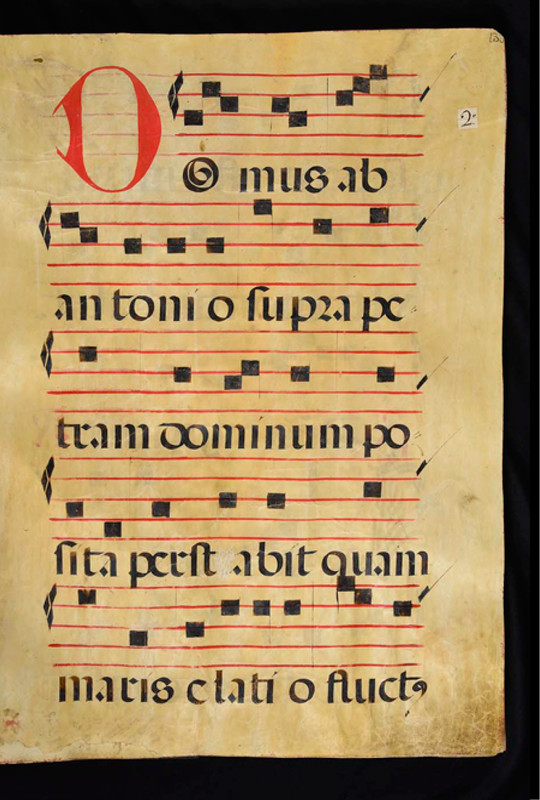 2
D O mus ab
an toni o ſu pra pe
tram dominum po
ſita perſt abit quam
maris elati o fluctꝯ